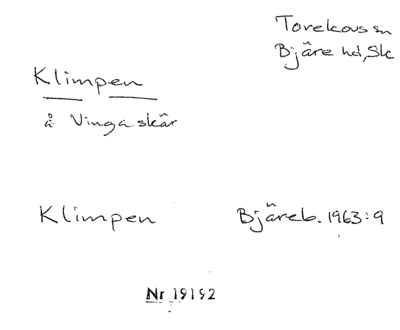 Torekovs sn
Bjäre hd, Sk
Klimpen
å Vinga skär
Klimpen Bjäreb. 1963:9
Nr 19192